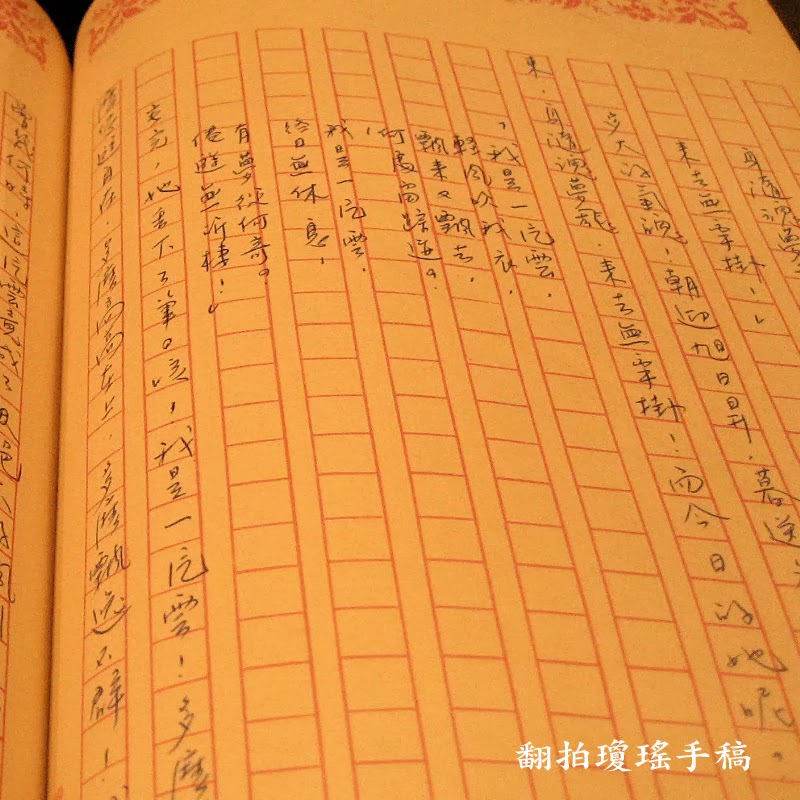 身隨魂夢
來去無牽掛!」
多大的氣魄!朝迎旭日昇,暮送
東,身隨魂夢飛,來去無牽掛!而今日的她呢。
「我是一片雲,
輕風吹我衣,
飄來又飄去,
何處留蹤迹。
我是一片雲,
終日無休息,
有夢從何寄。
倦遊無所棲!」
寫完,她丟下了筆。唉,我是一片雲!多麼
自在,多麼高高在上,多麼飄逸不群!
翻拍瓊瑤手稿